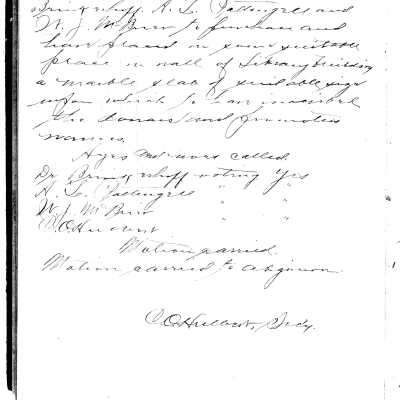 Brinkerhoff, A. L. Pattengill and
W. J. McBirw to purchase and
have placed in some suitable
place in wall of Library building
a marble slab of suitable size
upon which to have inscribed
the donors and promoters
names.
Ayes and naves called
Dr Brinkerhoff voting Yes
A. L. Pattengill " "
W. J. McBirw " "
C. O. Hulbert
Motion carried.
Motion carried to adjourn.
C. O. Hulbert, Secy.